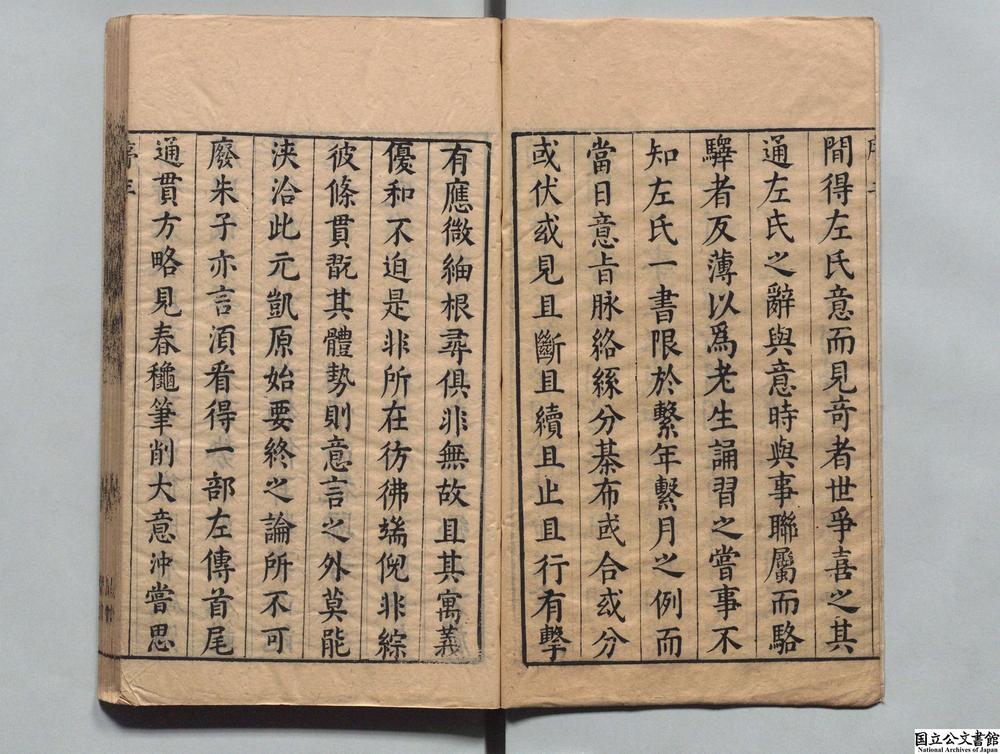 間得左氏意而見奇者世爭喜之其
通左氏之辭與意時與事聯屬而駱
驛者反薄以爲老生誦習之嘗事不
知左氏一書限於繫年繫月之例而
當日意旨脉絡絲分棊布或合或分
或伏或見且斷且續且止且行有擊
有應微紬根尋俱非無故且其寓義
優和不迫是非所在彷彿端倪非綜
彼條貫翫其體勢則意言之外莫能
浹洽此元凱原始要終之論所不可
廢朱子亦言須看得一部左傳首尾
通貫方略見春龝筆削大意沖嘗思
序
国立公文書館
National Archives of Japan